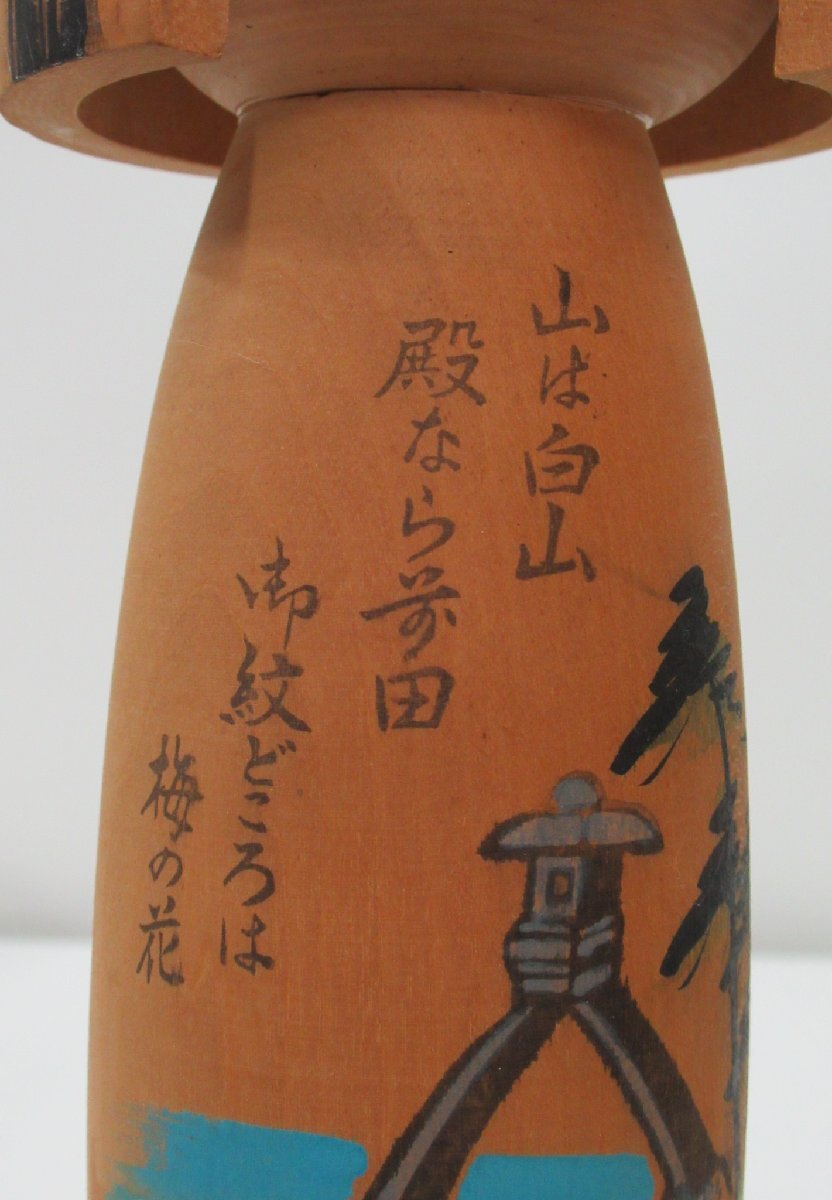 山は白山
殿なら前田
御紋どころは
梅の花